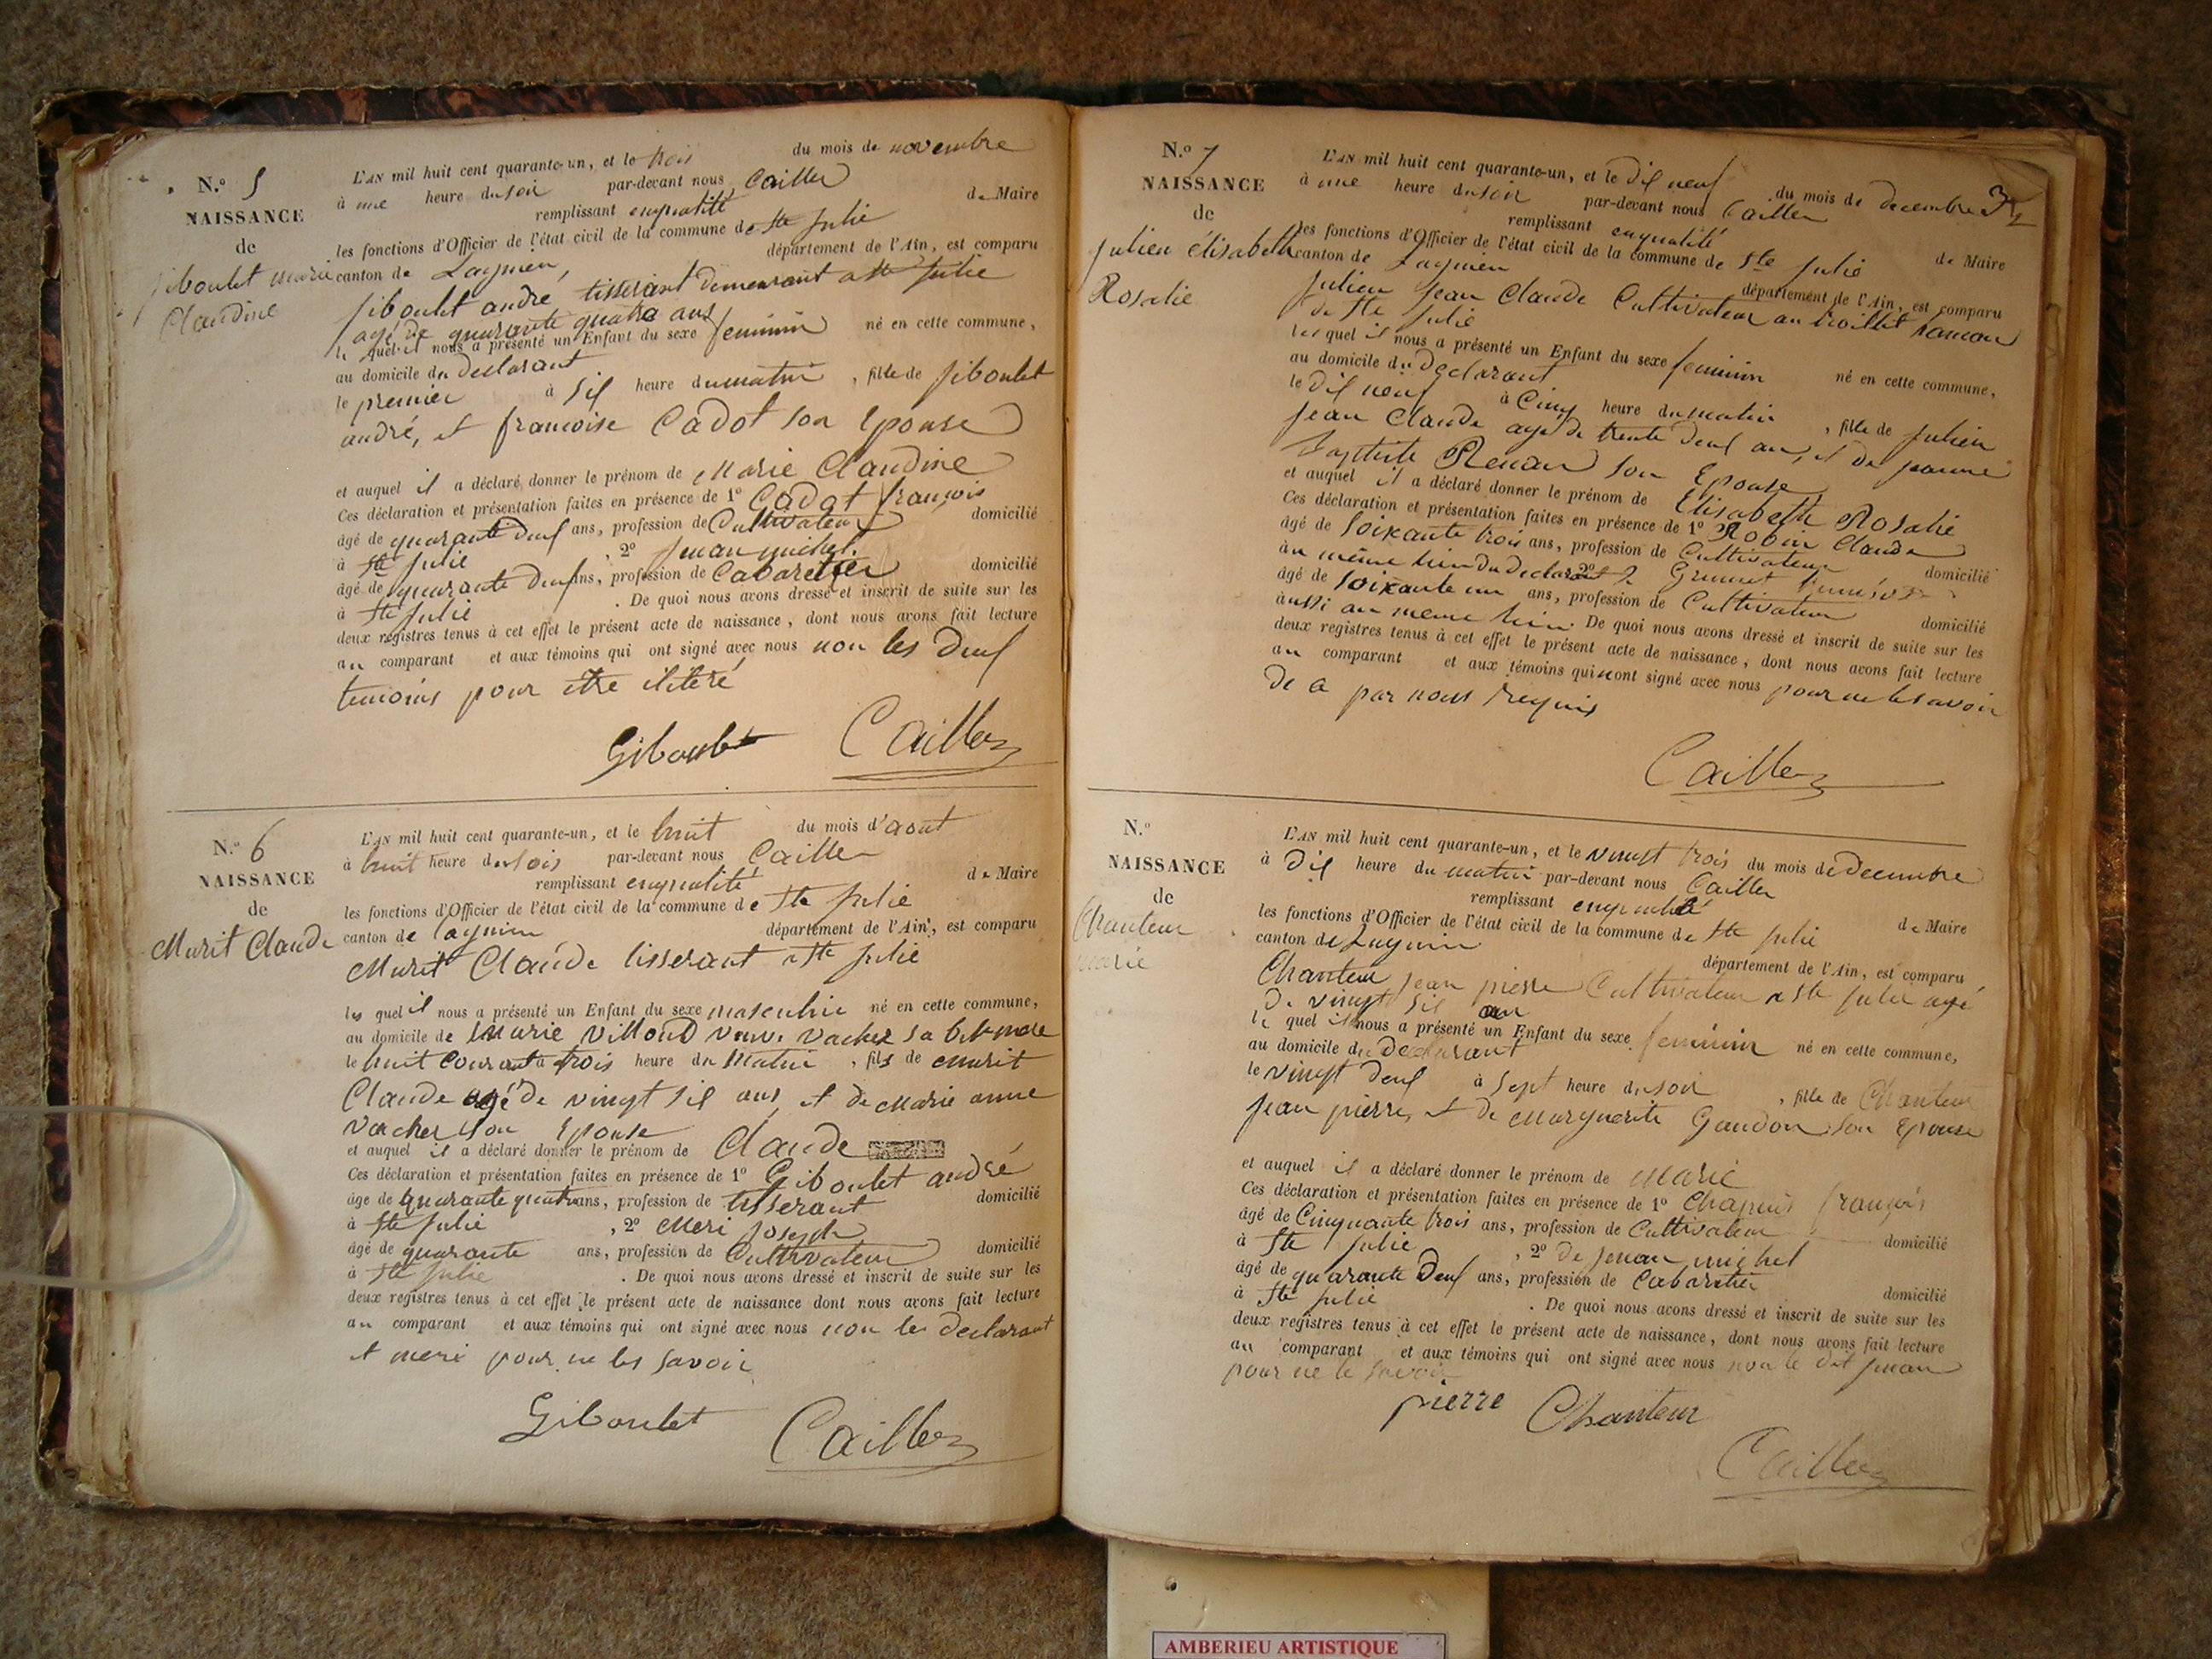 N.º 5
NAISSANCE
de
Giboulet marie
Claudine
L'AN mil huit cent quarante-un, et le trois du mois de novembre
à une heure du soir par-devant nous Cailler
remplissant enqualité de Maire
les fonctions d'Officier de l'état civil de la commune de Ste Julie
canton de Lagnieu, département de l'Ain, est comparu
Giboulet andré tisserant demeurant a Ste Julie
agé de quarante quatre ans
le quel il nous a présenté un Enfant du sexe feminin né en cette commune,
au domicile du declarant
le premier à Sil heure du matin, fille de Giboulet
andré, et francoise Cadot son Epouse
et auquel il a déclaré donner le prénom de Marie Claudine
Ces déclaration et présentation faites en présence de 1º Cadot françois
âgé de quarante deuf ans, profession de Cultivateur domicilié
à Ste Julie, 2º Junan michel
âgé de quarante deuf ans, profession de Cabaretier domicilié
à Ste Julie. De quoi nous avons dressé et inscrit de suite sur les
deux registres tenus à cet effet le présent acte de naissance, dont nous avons fait lecture
au comparant et aux témoins qui ont signé avec nous non les deuf
temoins pour etre iliteré
Giboulet Cailler
N.º 6
NAISSANCE
de
Murit Claude
L'AN mil huit cent quarante-un, et le huit du mois d'aout
à huit heure du soir par-devant nous Cailler
remplissant enqualité de Maire
les fonctions d'Officier de l'état civil de la commune de Ste Julie
canton de lagnieu département de l'Ain, est comparu
Murit Claude tisserant a Ste Julie
le quel il nous a présenté un Enfant du sexe masculin né en cette commune,
au domicile de Marie Villoud veuve Vacher sa belmere
le huit courant à trois heure du matin, fils de murit
Claude agé de vingt sil ans, et de Marie anne
Vacher son Epouse
et auquel il a déclaré donner le prénom de Claude
Ces déclaration et présentation faites en présence de 1º Giboulet andré
âge de quarante quatre ans, profession de tisserant domicilié
à Ste Julie, 2º Meri Joseph
âgé de quarante ans, profession de Cultivateur domicilié
à Ste Julie. De quoi nous avons dressé et inscrit de suite sur les
deux registres tenus à cet effet le présent acte de naissance dont nous avons fait lecture
au comparant et aux témoins qui ont signé avec nous non le declarant
et meri pour ne les savoir
Giboulet Cailler
N.º 7
NAISSANCE
de
Julien élisabeth
Rosalie
L'AN mil huit cent quarante-un, et le dil neuf du mois de decembre
à une heure du soir par-devant nous Cailler
remplissant enqualité de Maire
les fonctions d'Officier de l'état civil de la commune de Ste Julie
canton de Lagnieu département de l'Ain, est comparu
Julien Jean Claude Cultivateur au trollliet hamau
de Ste Julie
le quel il nous a présenté un Enfant du sexe feminin né en cette commune,
au domicile du declarant
le dil neuf à Cinq heure du matin, fille de Julien
Jean Claude agé de trente deuf ans, et de Jeanne
baptiste Renan son Epouse
et auquel il a déclaré donner le prénom de Elisabeth Rosalie
Ces déclaration et présentation faites en présence de 1º Robin Claude
âgé de Soixante trois ans, profession de Cultivateur domicilié
au même lieu du declarant 2º Grumet
âgé de soixante un ans, profession de Cultivateur domicilié
aussi au meme lieu. De quoi nous avons dressé et inscrit de suite sur les
deux registres tenus à cet effet le présent acte de naissance, dont nous avons fait lecture
au comparant et aux témoins qui nont signé avec nous pour ne le savoir
de a par nous requis
Cailler
N.º
NAISSANCE
de
Chanteur
marie
L'AN mil huit cent quarante-un, et le vingt trois du mois de Decembre
à Dil heure du matin par-devant nous Cailler
remplissant enqualité de Maire
les fonctions d'Officier de l'état civil de la commune de Ste Julie
canton de Lagnieu département de l'Ain, est comparu
Chanteur Jean pierre Cultivateur a Ste Julie agé
de vingt sil an
le quel il nous a présenté un Enfant du sexe feminin né en cette commune,
au domicile du declarant
le vingt deuf à sept heure du soir, fille de Chanteur
Jean pierre, et de Marguerite Gaudon son Epouse
et auquel il a déclaré donner le prénom de Marie
Ces déclaration et présentation faites en présence de 1º Chapuis françois
âgé de Cinquante trois ans, profession de Cultivateur domicilié
à Ste Julie, 2º de Junan michel
âgé de quarante Deuf ans, profession de Cabaretier domicilié
à Ste Julie. De quoi nous avons dressé et inscrit de suite sur les
deux registres tenus à cet effet le présent acte de naissance, dont nous avons fait lecture
au comparant et aux témoins qui ont signé avec nous non le dit Junan
pour ne le savoir
pierre Chanteur
Cailler
AMBERIEU ARTISTIQUE